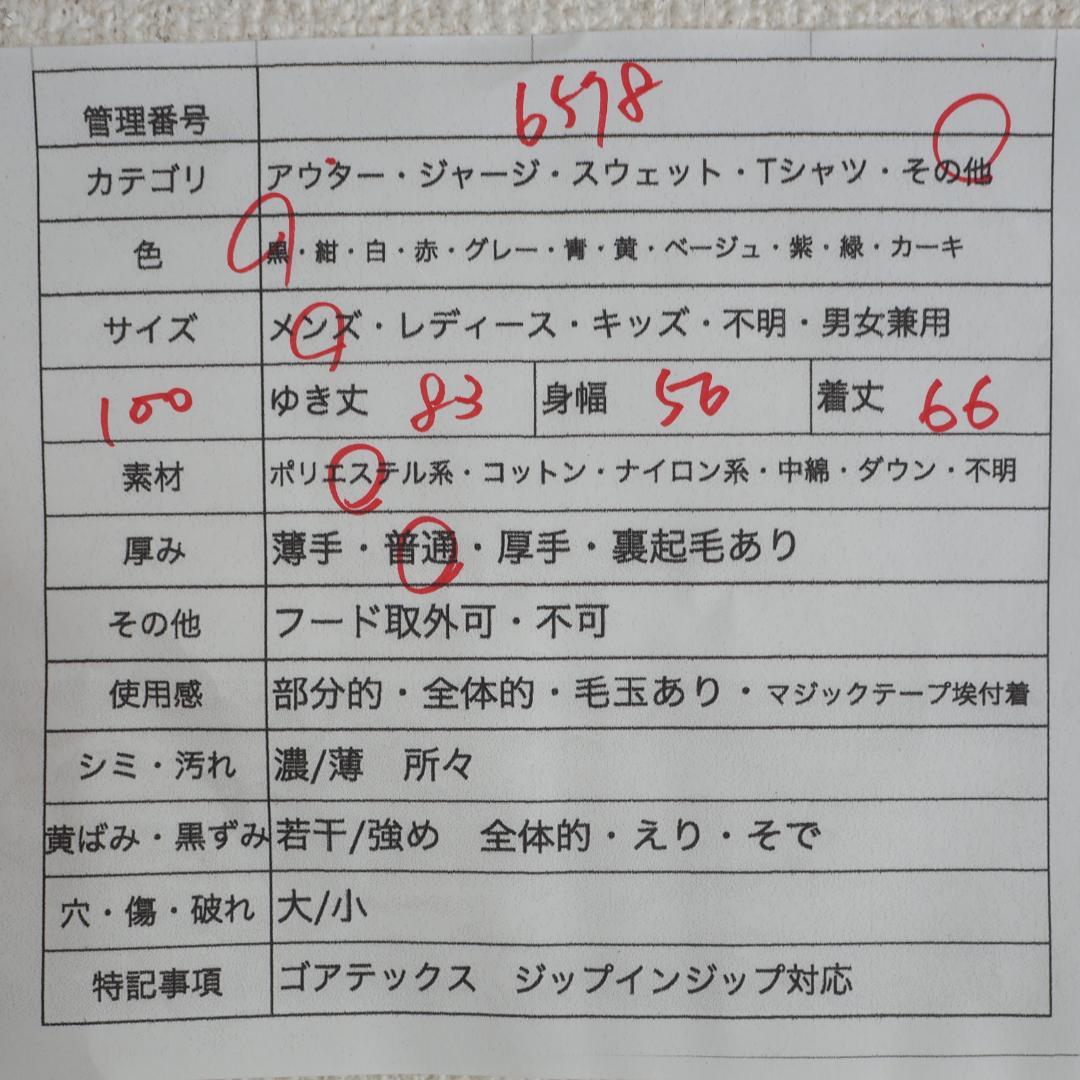 管理番号 6578
カテゴリ アウター・ジャージ・スウェット・Tシャツ・その他
色 黒・紺・白・赤・グレー・青・黄・ベージュ・紫・緑・カーキ
サイズ メンズ・レディース・キッズ・不明・男女兼用
100 ゆき丈 83 身幅 56 着丈 66
素材 ポリエステル系・コットン・ナイロン系・中綿・ダウン・不明
厚み 薄手・普通・厚手・裏起毛あり
その他 フード取外可・不可
使用感 部分的・全体的・毛玉あり・マジックテープ埃付着
シミ・汚れ 濃/薄 所々
黄ばみ・黒ずみ 若干/強め 全体的・えり・そで
穴・傷・破れ 大/小
特記事項 ゴアテックス ジップインジップ対応